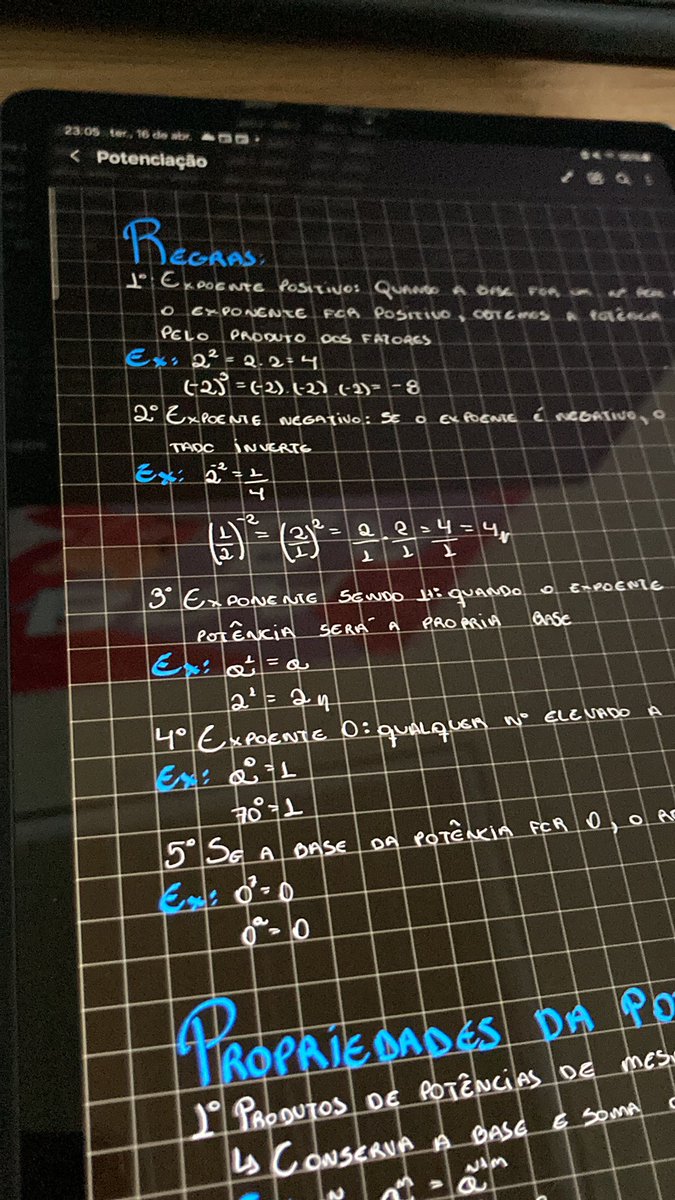 23:05 ter., 16 de abr.
< Potenciação
REGRAS:
1º EXPOENTE POSITIVO: QUANDO A BASE FOR UM Nº
O EXPONENTE FOR POSITIVO, OBTEMOS A POTÊNCIA
PELO PRODUTO DOS FATORES
Ex: 2² = 2.2 = 4
(-2)³ = (-2).(-2).(-2) = -8
2º EXPOENTE NEGATIVO: SE O EXPOENTE É NEGATIVO, O
TADO INVERTE
Ex: 2⁻² = 1/4
(1/2)⁻² = (2/1)² = 2/1 . 2/1 = 4/1 = 4
3º EXPONENTE SENDO 1: QUANDO O EXPOENTE
POTÊNCIA SERÁ A PROPRIA BASE
Ex: a¹ = a
2¹ = 2
4º EXPOENTE 0: QUALQUER Nº ELEVADO A
Ex: a⁰ = 1
70⁰ = 1
5º SE A BASE DA POTÊNCIA FOR 0, O
Ex: 0⁷ = 0
0ᵃ = 0
PROPRIEDADES DA PO
1º PRODUTOS DE POTÊNCIAS DE MES
↳ CONSERVA A BASE E SOMA O
aᵐ = aⁿ⁺ᵐ